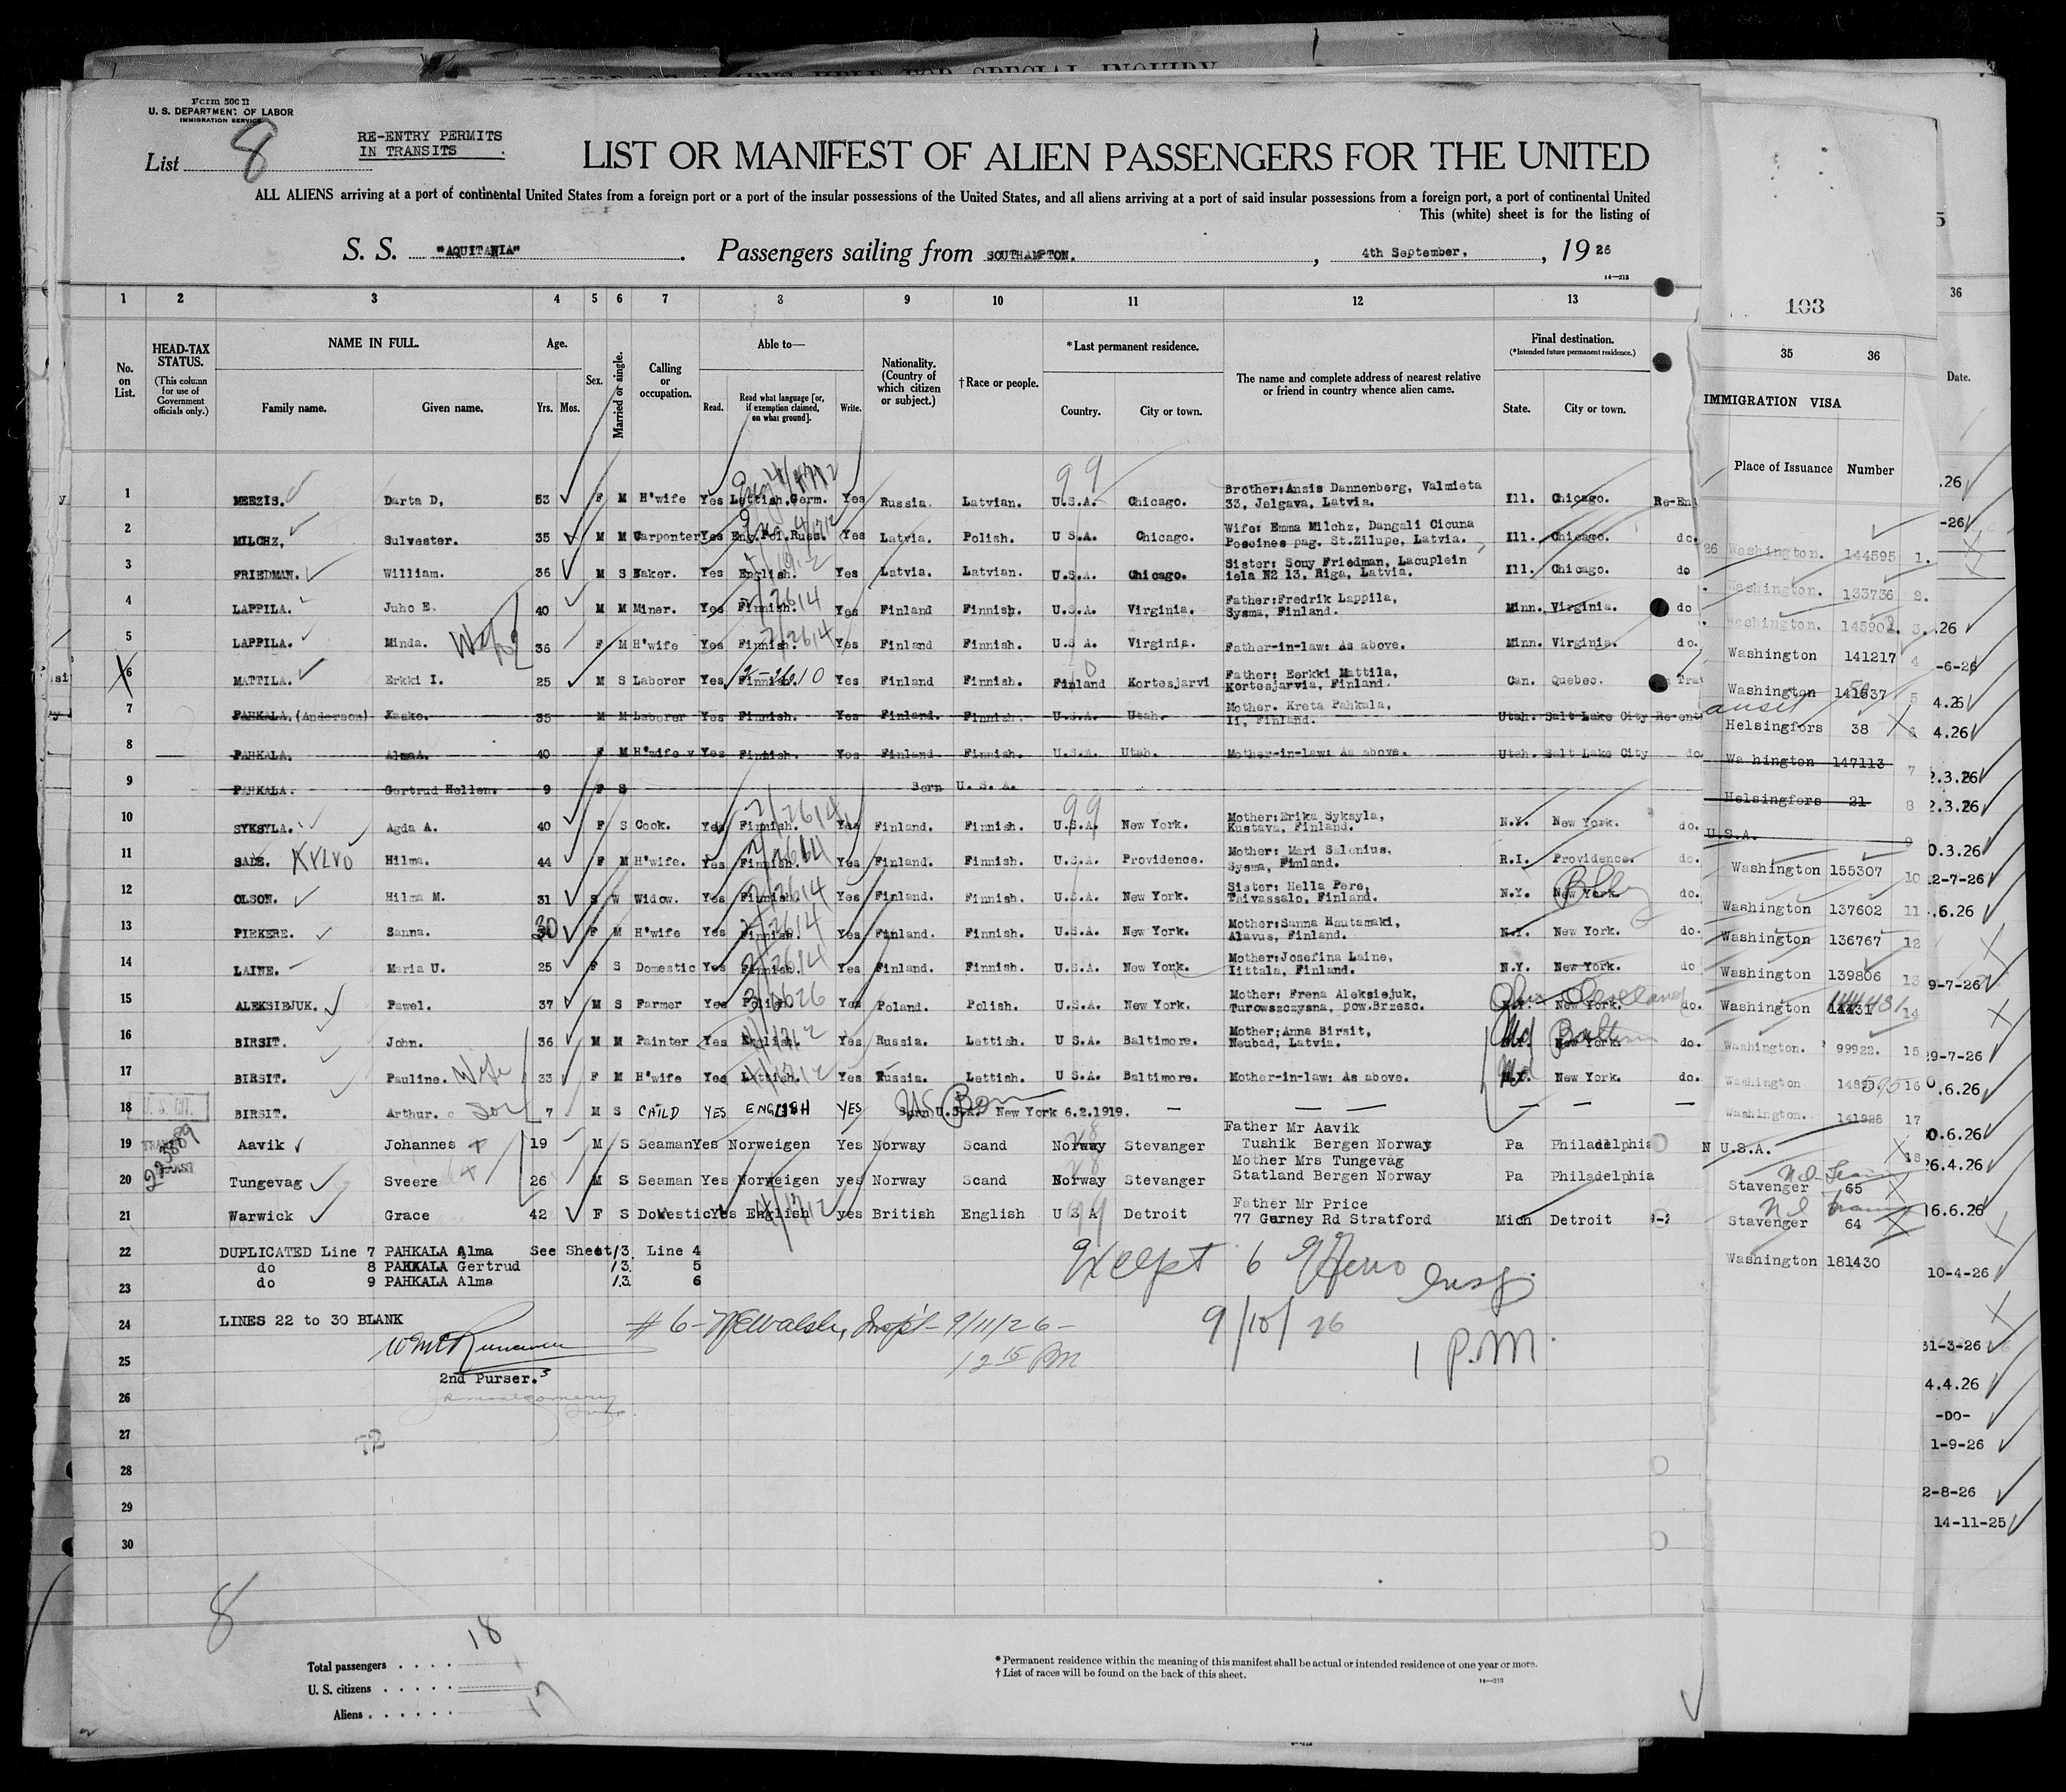 RECORD OF ALIENS HELD FOR SPECIAL INQUIRY
Form 500 B
U. S. DEPARTMENT OF LABOR
IMMIGRATION SERVICE
List 8
RE-ENTRY PERMITS
IN TRANSITS
LIST OR MANIFEST OF ALIEN PASSENGERS FOR THE UNITED
ALL ALIENS arriving at a port of continental United States from a foreign port or a port of the insular possessions of the United States, and all aliens arriving at a port of said insular possessions from a foreign port, a port of continental United
This (white) sheet is for the listing of
S. S. "AQUITANIA". Passengers sailing from SOUTHAMPTON., 4th September, , 1926
14—213
1 2 3 4 5 6 7 8 9 10 11 12 13
No. on List.
HEAD-TAX STATUS.
(This column for use of Government officials only.)
NAME IN FULL.
Family name. Given name.
Age.
Yrs. Mos.
Sex.
Married or single.
Calling or occupation.
Able to—
Read. Read what language [or, if exemption claimed, on what ground]. Write.
Nationality. (Country of which citizen or subject.)
†Race or people.
*Last permanent residence.
Country. City or town.
The name and complete address of nearest relative or friend in country whence alien came.
Final destination.
(*Intended future permanent residence.)
State. City or town.
1 MEEZIS. Darta D, 53 F M H'wife Yes Lettish,Germ. Yes Russia. Latvian. U.S.A. Chicago. Brother:Ansis Dannenberg, Valmieta 33, Jelgava, Latvia. Ill. Chicago. Re-Ent
2 MILCHZ, Sulvester. 35 M M Carpenter Yes Eng.Pol.Russ. Yes Latvia. Polish. U S.A. Chicago. Wife: Emma Milchz, Dangali Cicuna Poseines pag. St.Zilupe, Latvia. Ill. Chicago. do.
3 FRIEDMAN. William. 36 M S Baker. Yes English. Yes Latvia. Latvian. U.S.A. Chicago. Sister: Sony Friedman, Lacuplein iela N2 13, Riga, Latvia. Ill. Chicago. do
4 LAPPILA. Juho E. 40 M M Miner. Yes Finnish. Yes Finland Finnish. U.S.A. Virginia. Father:Fredrik Lappila, Sysma, Finland. Minn. Virginia. do
5 LAPPILA. Minda. Wife 36 F M H'wife Yes Finnish. Yes Finland Finnish. U.S A Virginia. Father-in-law: As above. Minn. Virginia. do.
6 MATTILA. Erkki I. 25 M S Laborer Yes Finnish. Yes Finland Finnish. Finland Kortesjarvi Father: Eerkki Mattila, Kortesjarvia, Finland. Can. Quebec. Tra
7 PAHKALA.(Anderson) Kasko. 35 M M Laborer Yes Finnish. Yes Finland. Finnish. U.S.A. Utah. Mother. Kreta Pahkala, Ii, Finland. Utah. Salt Lake City Re-ent
8 PAHKALA. AlmaA. 40 F M H'wife Yes Finnish. Yes Finland Finnish. U.S.A. Utah. Mother-in-law: As above. Utah. Salt Lake City do.
9 PAHKALA. Gertrud Hellen. 9 F S Born U. S. A.
10 SYKSYLA. Agda A. 40 F S Cook. Yes Finnish. Yes Finland. Finnish. U.S.A. New York. Mother:Erika Syksyla, Kustava, Finland. N.Y. New York. do.
11 SADE. Hilma. 44 F M H'wife. Yes Finnish. Yes Finland. Finnish. U.S.A. Providence. Mother: Mari Salenius, Sysma, Finland. R.I. Providence. do.
12 OLSON. Hilma M. 31 S W Widow. Yes Finnish. Yes Finland. Finnish. U.S.A. New York. Sister: Hella Pere, Taivassalo, Finland. N.Y. New York. do.
13 PIRKERE. Sanna. 30 F M H'wife Yes Finnish. Yes Finland. Finnish. U.S.A. New York. Mother:Sanna Hautamaki, Alavus, Finland. N.Y. New York. do.
14 LAINE. Maria U. 25 F S Domestic Yes Finnish. Yes Finland. Finnish. U.S.A. New York. Mother:Josefina Laine, Iittala, Finland. N.Y. New York. do
15 ALEKSIEJUK. Pawel. 37 M S Farmer Yes Polish. Yes Poland. Polish. U.S.A. New York. Mother: Frena Aleksiejuk, Turowszczysna, pow.Brzesc. Ohio Cleveland N.Y. New York. do.
16 BIRSIT. John. 36 M M Painter Yes English. Yes Russia. Lettish. U S.A. Baltimore. Mother:Anna Birsit, Neubad, Latvia. Md New York. do.
17 BIRSIT. Pauline. Wife 33 F M H'wife Yes Lettish. Yes Russia. Lettish. U S.A Baltimore. Mother-in-law: As above. Md N.Y. New York. do.
18 U. S. CIT. BIRSIT. Arthur. Son 7 M S CHILD YES ENGLISH YES US Born Born U.S.A. New York 6.2.1919. — — — — — —
19 Aavik Johannes 19 M S Seaman Yes Norweigen Yes Norway Scand Norway Stevanger Father Mr Aavik Tushik Bergen Norway Pa Philadelphia
20 Tungevag Sveere 26 M S Seaman Yes Norweigen yes Norway Scand Norway Stevanger Mother Mrs Tungevag Statland Bergen Norway Pa Philadelphia
21 Warwick Grace 42 F S Domestic Yes English yes British English U S A Detroit Father Mr Price 77 Gurney Rd Stratford Mich Detroit
22 DUPLICATED Line 7 PAHKALA Alma See Sheet 13 Line 4
do 8 PAHKALA Gertrud 13 5
23 do 9 PAHKALA Alma 13 6
24 LINES 22 to 30 BLANK
Except 6
Insp.
9/10/26
1 P.M.
#6- Walsh, Insp't- 9/11/26-
12 15 PM
25 2nd Purser.
26
27
28
29
30
8
Total passengers . . . . 18
U. S. citizens . . . . .
Aliens . . . . . . 17
*Permanent residence within the meaning of this manifest shall be actual or intended residence of one year or more.
†List of races will be found on the back of this sheet.
14—213
103
35 36
IMMIGRATION VISA
Place of Issuance Number
26 Washington. 144595 1.
Washington. 133736 2.
Washington. 3.
Washington 141217 4
Washington 5
Helsingfors 38
Washington 147113 7
Helsingfors 21 8
U.S.A. 9
Washington 155307 10
Washington 137602 11
Washington 136767 12
Washington 139806 13
Washington 14
Washington. 99922. 15
Washington 16
Washington. 141925 17
N U.S.A. 18
Stavenger 65
Stavenger 64
Washington 181430
36
Date.
.26
-26
.26
-6-26
4.26
4.26
2.3.26
2.3.26
0.3.26
2-7-26
.6.26
9-7-26
29-7-26
.6.26
0.6.26
26.4.26
16.6.26
10-4-26
31-3-26
4.4.26
-DO-
1-9-26
2-8-26
14-11-25